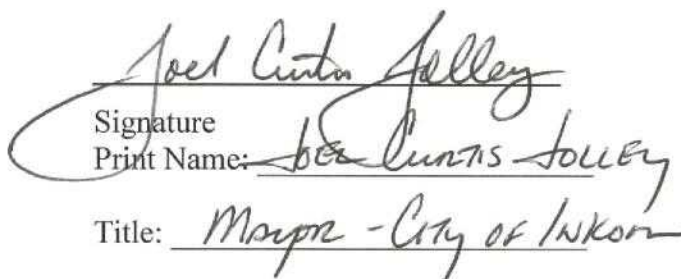 Joel Curtis Jolley
Signature
Print Name: JOEL CURTIS JOLLEY
Title: MAYOR - CITY OF INKOM